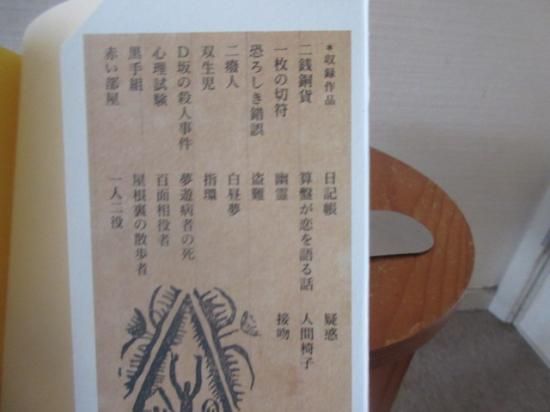 *収録作品
二銭銅貨
一枚の切符
恐ろしき錯誤
二癈人
双生児
D坂の殺人事件
心理試験
黒手組
赤い部屋
日記帳
算盤が恋を語る話
幽霊
盗難
白昼夢
指環
夢遊病者の死
百面相役者
屋根裏の散歩者
一人二役
疑惑
人間椅子
接吻